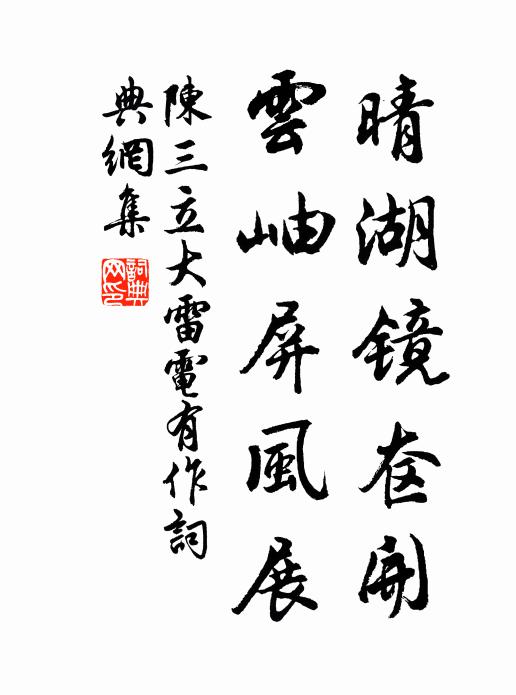 晴湖镜奁開
雲岫屏風展
陳三立大雷電有作詞
典網集
詞典网印